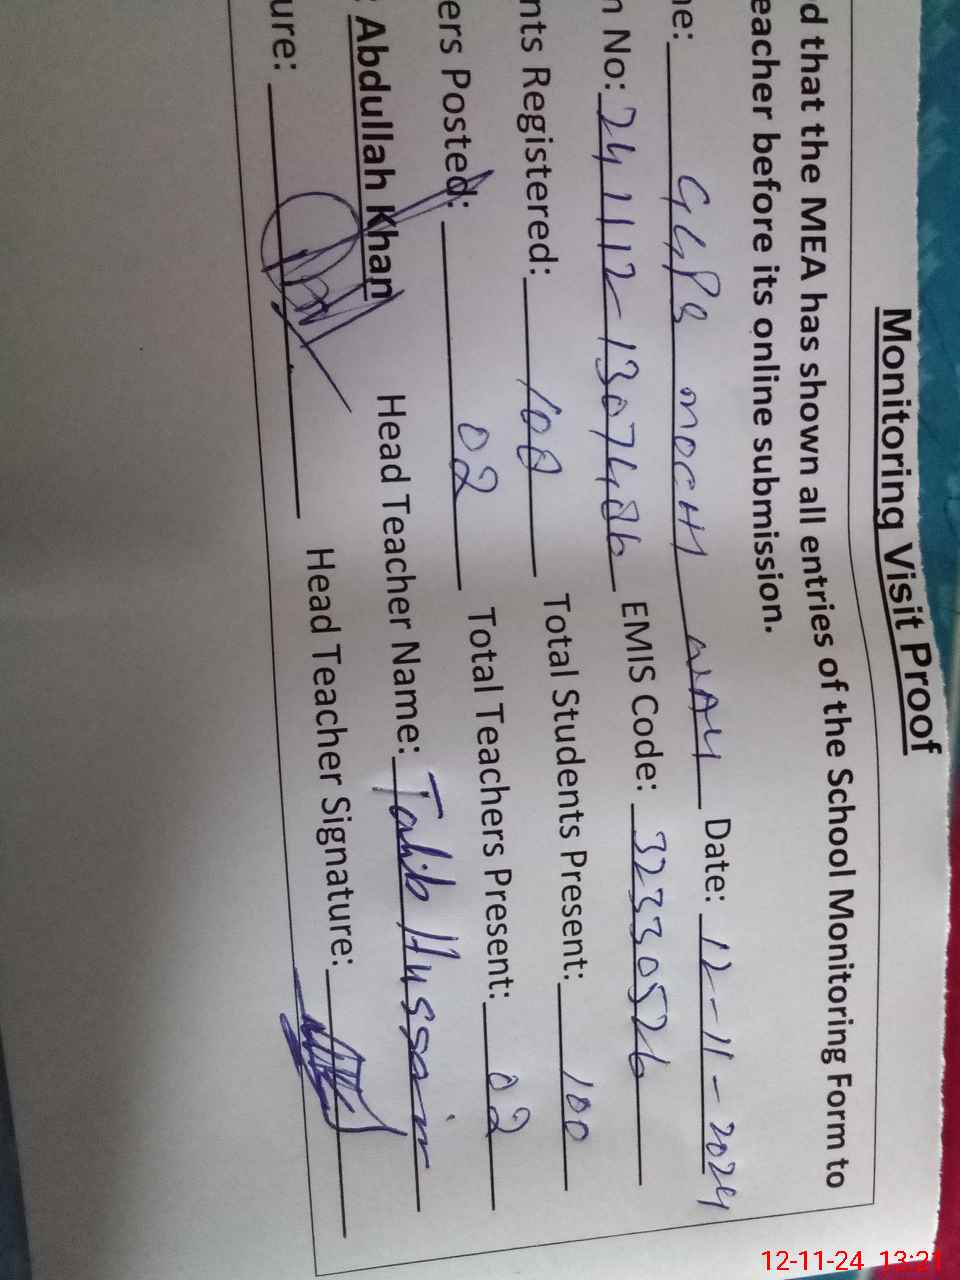 Monitoring Visit Proof
d that the MEA has shown all entries of the School Monitoring Form to
eacher before its online submission.
ne: GGPS MOCH WAH Date: 12-11-2024
n No: 241112-1307486 EMIS Code: 32330526
nts Registered: 100 Total Students Present: 100
ers Posted: 02 Total Teachers Present: 02
: Abdullah Khan Head Teacher Name: Talib Hussain
ure: Head Teacher Signature:
12-11-24 13:21